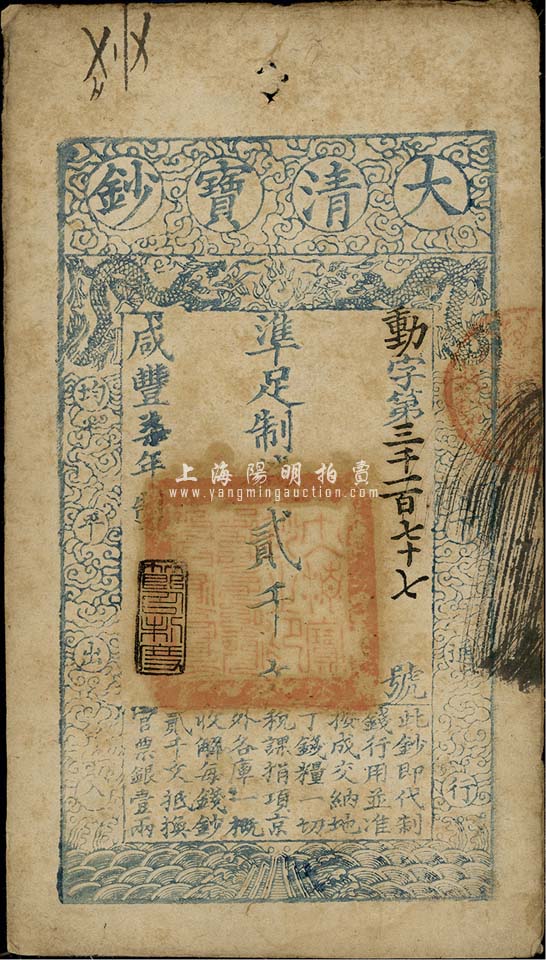 大清寶鈔
動字第三千一百七十七號
準足制錢貳千文
咸豐柒年製
天下通行
均平出入
此鈔即代制
錢行用並准
按成交納地
丁錢糧一切
稅課捐項京
外各庫一概
收解每錢鈔
貳千文抵換
官票銀壹兩
上海陽明拍賣
www.yangmingauction.com